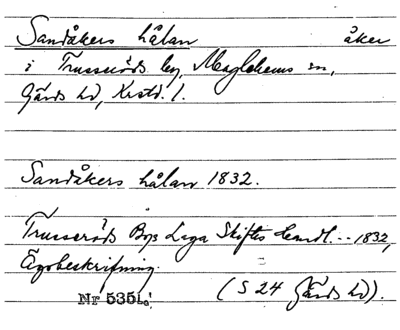 Sandåkers hålan åker
i Trusseröds by, Maglehems sn,
Gärds hd, Krstd. l.
Sandåkers hålan 1832.
Trusseröds Bys Laga Skiftes Handl. -- 1832,
Ägobeskrifning.
(S 24 Gärds hd).
Nr 5351.